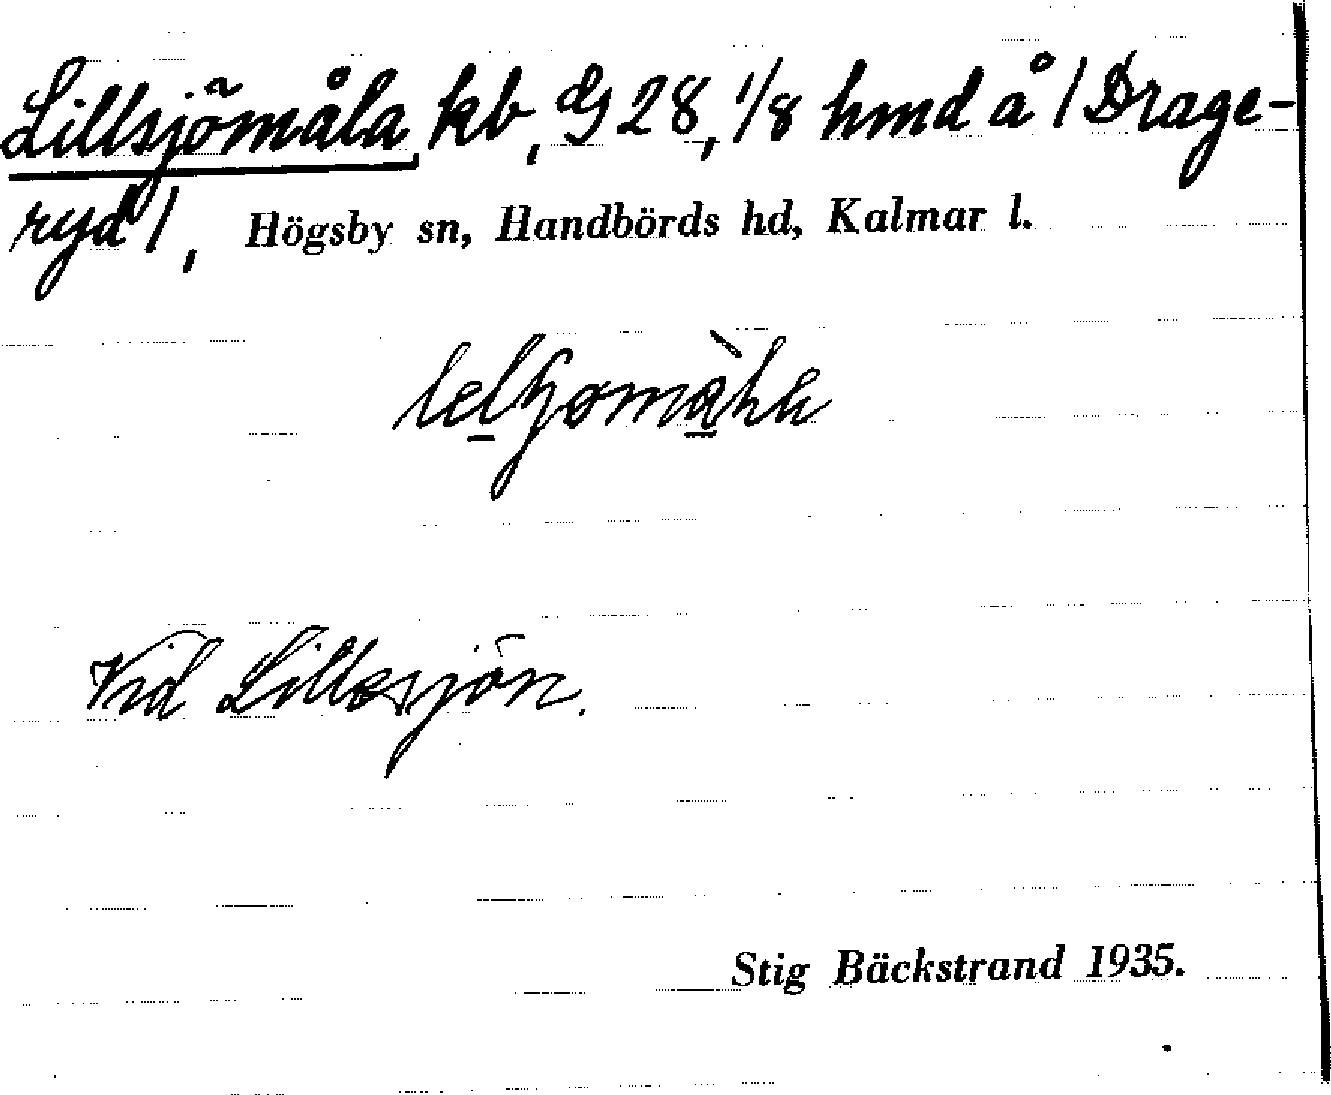 Lillsjömåla kb, dJ 28, 1/8 hmd å /Drage-
ryd/, Högsby sn, Handbörds hd, Kalmar l.
Vid Lillesjön.
Stig Bäckstrand 1935.